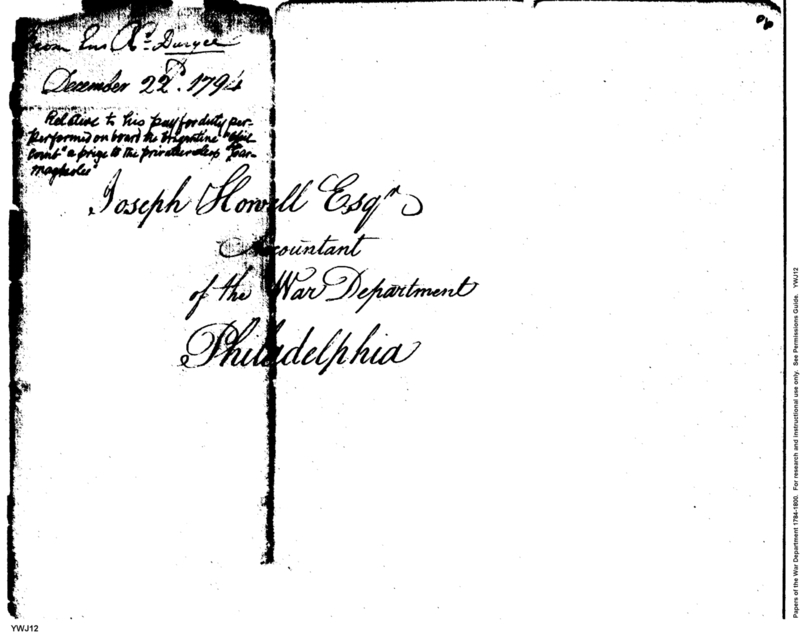 from Ens Rd. Duryee
December 22d. 1794
Relative to his pay for duty per-
performed on board the brigantine
a prize to the privateer sloop
Joseph Howell Esqr
Accountant
of the War Department
Philadelphia
Papers of the War Department 1784-1800. For research and instructional use only. See Permissions Guide. YWJ12
YWJ12